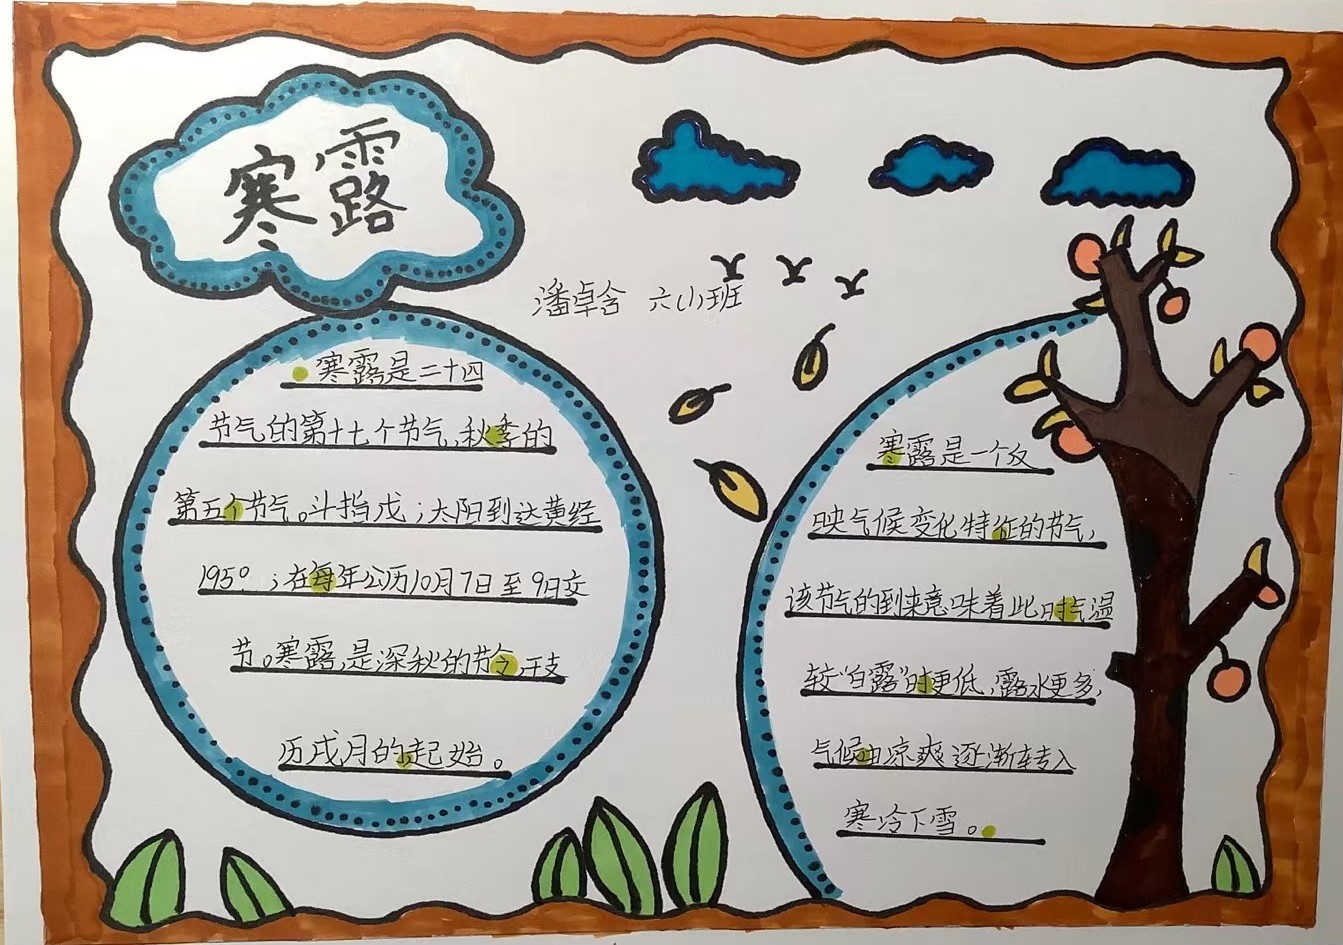 寒露
潘卓含 六(1)班
寒露是二十四
节气的第十七个节气,秋季的
第五个节气。斗指戊;太阳到达黄经
195°;在每年公历10月7日至9日交
节。寒露,是深秋的节令,干支
历戌月的起始。
寒露是一个反
映气候变化特征的节气,
该节气的到来意味着此时气温
较“白露”时更低,露水更多,
气候由凉爽逐渐转入
寒冷下雪。